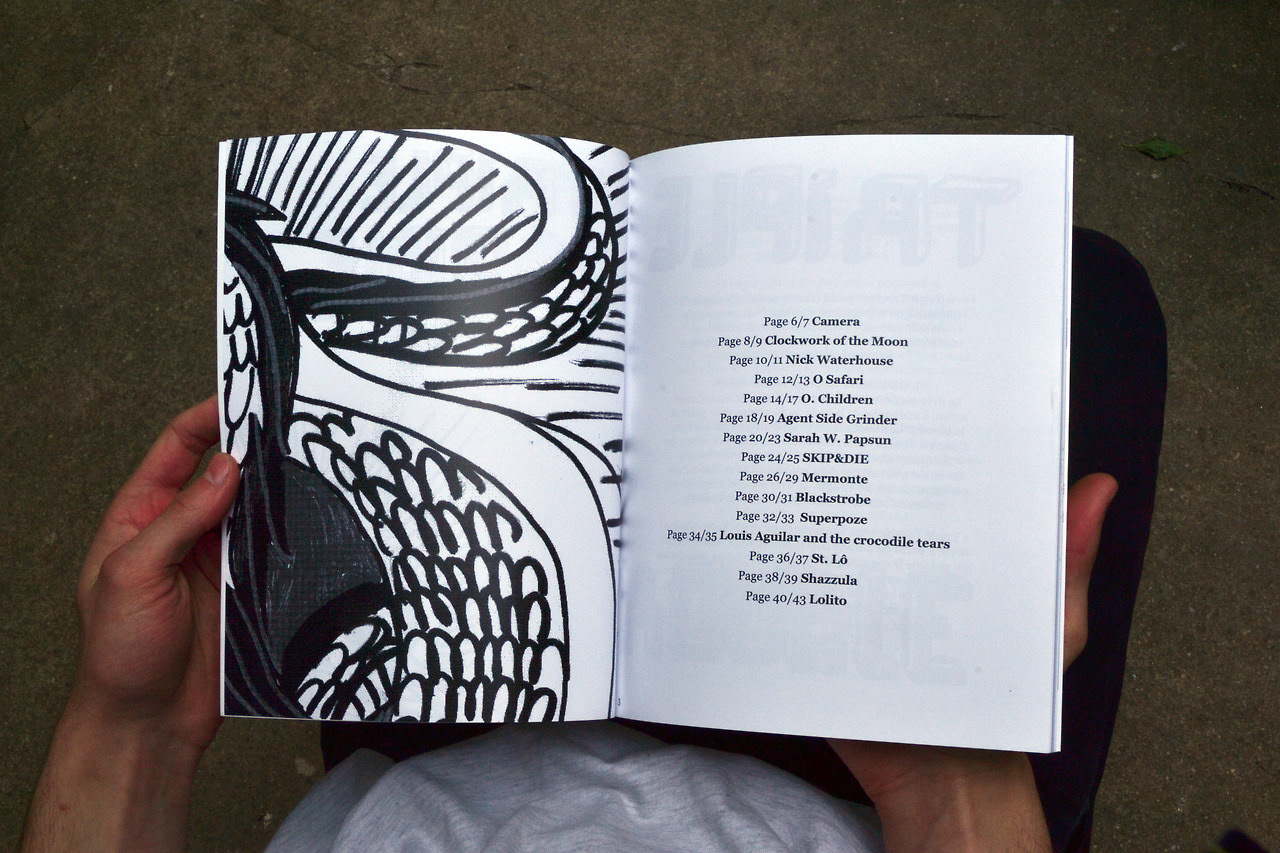 Page 6/7 Camera
Page 8/9 Clockwork of the Moon
Page 10/11 Nick Waterhouse
Page 12/13 O Safari
Page 14/17 O. Children
Page 18/19 Agent Side Grinder
Page 20/23 Sarah W. Papsun
Page 24/25 SKIP&DIE
Page 26/29 Mermonte
Page 30/31 Blackstrobe
Page 32/33 Superpoze
Page 34/35 Louis Aguilar and the crocodile tears
Page 36/37 St. Lô
Page 38/39 Shazzula
Page 40/43 Lolito
3